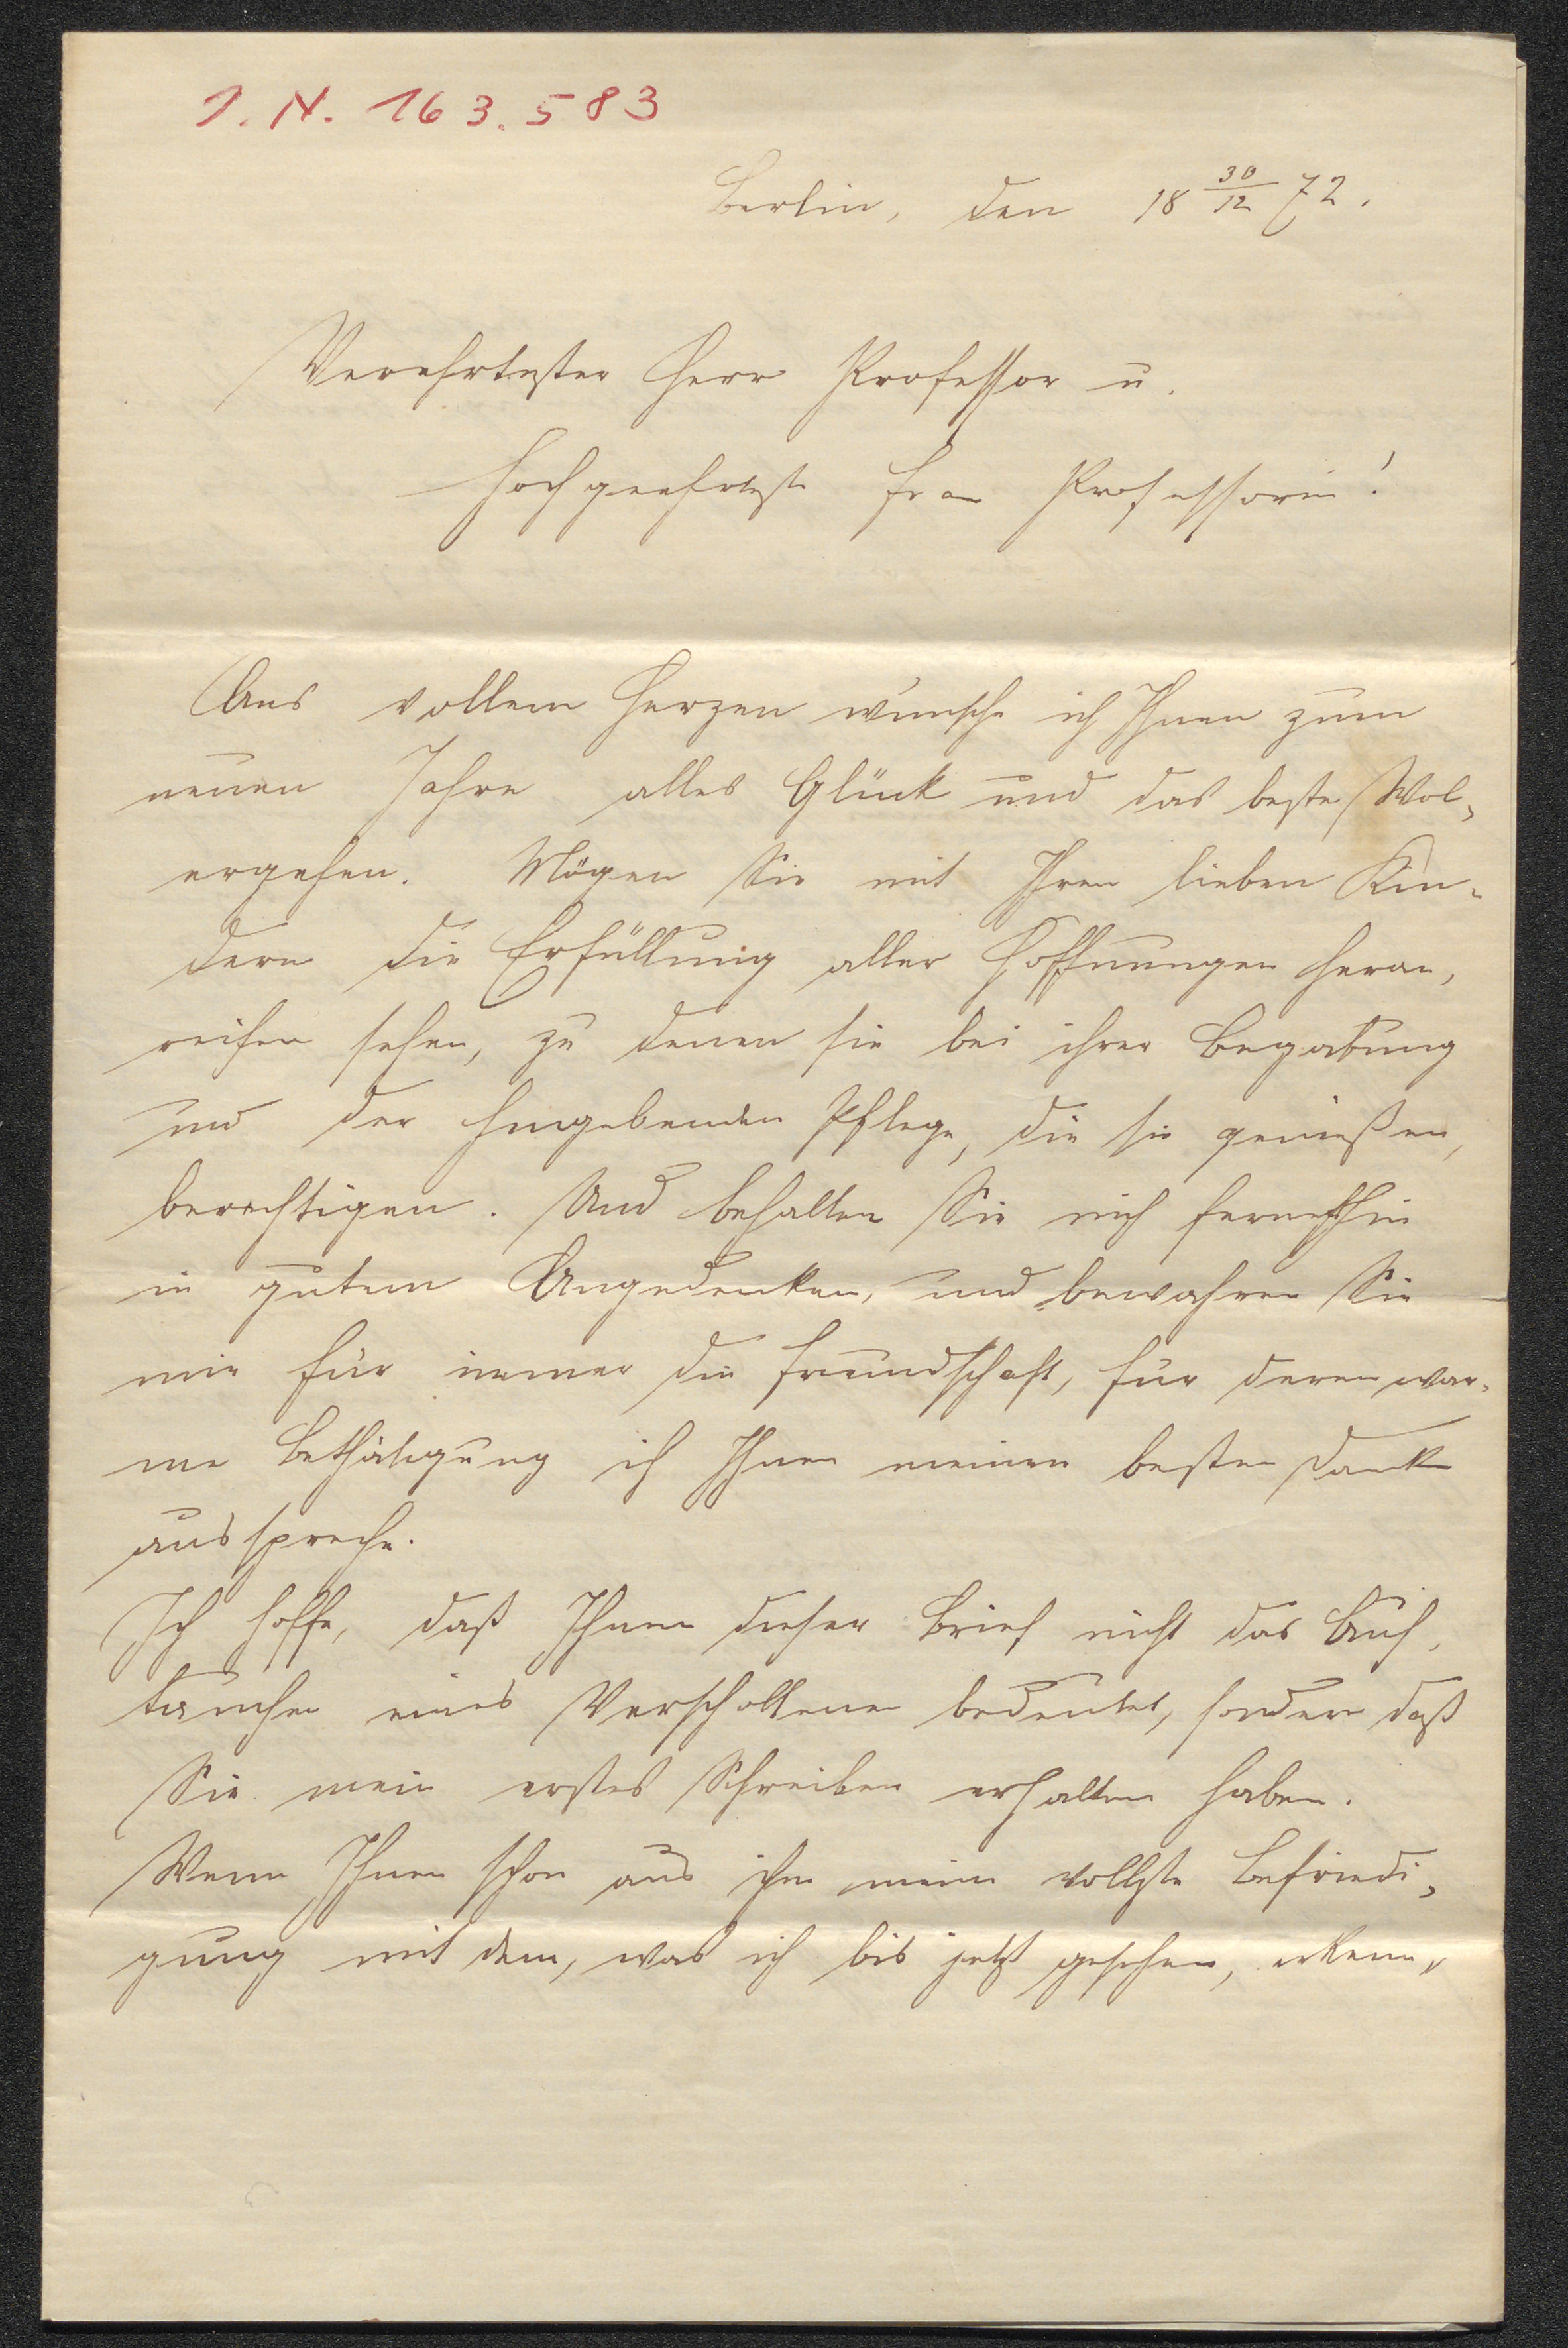 I. N. 163.583
Berlin, den 18 30/12 72.
Verehrtester Herr Professor u.
hochgeehrteste Frau Professorin!
Aus vollem Herzen wünsche ich Ihnen zum
neuen Jahre alles Glück und das beste Wol-
ergehen. Mögen Sie mit Ihren lieben Kin-
dern die Erfüllung aller Hoffnungen heran-
reifen sehen, zu denen sie bei ihrer Begabung
und der hingebenden Pflege, die sie genießen,
berechtigen. Und behalten Sie mich fernerhin
in gutem Angedenken, und bewahren Sie
mir für immer die Freundschaft, für deren war-
me Bethätigung ich Ihnen meinen besten Dank
ausspreche.
Ich hoffe, daß Ihnen dieser Brief nicht das Auf-
tauchen eines Verschollenen bedeutet, sondern daß
Sie mein erstes Schreiben erhalten haben.
Wenn Ihnen schon aus ihm meine vollste Befriedi-
gung mit dem, was ich bis jetzt gesehen, erkenn-